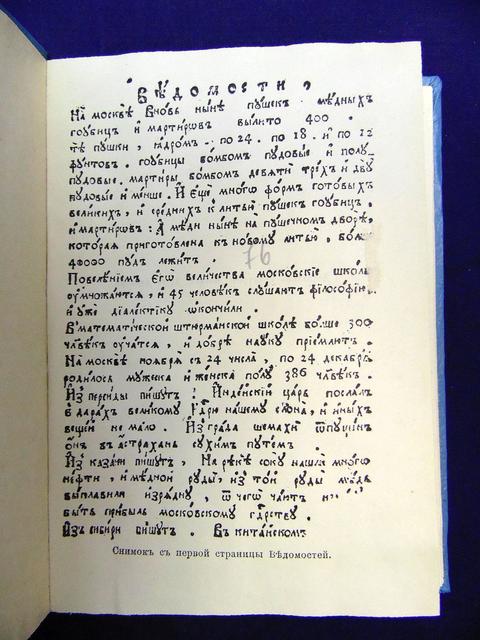 ВѢДОМОСТИ
На москвѣ вновь нынѣ пушек мѣдныхъ
гоубицъ и мартировъ вылито 400.
тѣ пушки, ядромъ – по 24. по 18. и по 12
фунтовъ. гоубицы бомбомъ пудовые и полу
пудовые. мартиры бомбомъ девяти трехъ и дву
пудовые и менше. И еще много формъ готовыхъ
великихъ, и среднихъ к литью пушекъ гоубицъ,
и мартировъ: А мѣди нынѣ на пушечном дворѣ,
которая приготовлена къ новому литью, бол
40000 пудъ лежитъ.
Повелѣнїемъ егѡ величества московскїе школы
оумножаются, и 45 человѣкъ слушаютъ фїлософїю,
и уже дїалектїку окончили.
В математїческой штюрманской школѣ болше 300
члвѣкъ оучатся, и добрѣ науку прїемлютъ.
На москвѣ ноября съ 24 числа, по 24 декабря
родилось мужеска и женска полу 386 члвѣкъ.
Из персиды пишутъ: Индѣйскїй царь послалъ
в дарахъ великому Гдрю нашему слона, и иныхъ
вещей не мало. Из града шемахи ѿпущенъ
онъ въ астрахань сухимъ путемъ.
Из казани пишутъ, На рѣкѣ соку нашли много
нефти, и мѣдной руды, из той руды мѣдь
выплавили изрядну, ѿ чего чаютъ
быть прибыль московскому гдрству.
Из сибири пишутъ. Въ китайскомъ
76
Снимокъ съ первой страницы Вѣдомостей.